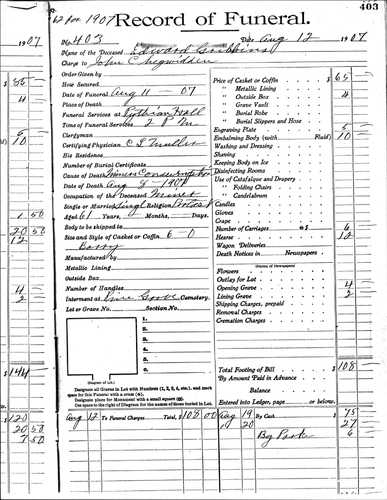 403
62 for 1907 Record of Funeral.
No. 403 Date Aug 12 1907
Name of the Deceased Edward
Charge to John Chegwidden
Order Given by
How Secured
Date of Funeral Aug 11 - 07
Place of Death
Funeral Services at Pythian Hall
Time of Funeral Services 2 P M
Clergyman
Certifying Physician C E
His Residence
Number of Burial Certificate
Cause of Death Miners Consumption
Date of Death Aug 9 - 190
Occupation of the Deceased Miner
Single or Married Single Religion
Aged 61 Years, Months, Days.
Body to be shipped to
Size and Style of Casket or Coffin 6-0
Manufactured by
Metallic Lining
Outside Box
Number of Handles
Interment at Pine Grove Cemetery.
Lot or Grave No. Section No.
1.
2.
3.
4.
5.
(Diagram of Lot.)
Designate all Graves in Lot with Numbers (1, 2, 3, 4, etc.), and mark
space for this Funeral with a cross (+).
Designate place for Monument with a small square.
Use space to the right of Diagram for the names of those buried in Lot.
Aug 12 To Funeral Charges Total, $ 108 00
Price of Casket or Coffin $ 65
" Metallic Lining
" Outside Box 4
" Grave Vault
" Burial Robe
" Burial Slippers and Hose
Engraving Plate 5
Embalming Body (with Fluid) 10
Washing and Dressing
Shaving
Keeping Body on Ice
Disinfecting Rooms
Use of Catafalque and Drapery
" Folding Chairs
" Candelabrum
Candles
Gloves
Crape
Number of Carriages @ $ 6
Hearse 12
Wagon Deliveries
Death Notices in Newspapers
(Names of Newspapers)
Flowers
Outlay for Lot
Opening Grave 4
Lining Grave 2
Shipping Charges, prepaid
Removal Charges
Cremation Charges
Total Footing of Bill $ 108
By Amount Paid in Advance
Balance
Entered into Ledger, page or below.
Aug 19 By Cash $ 75
" 20 27
By 6
1907
$ 85
4
6
10
1 50
20 50
12
4
2
$ 144
$ 120
20 50
7 50